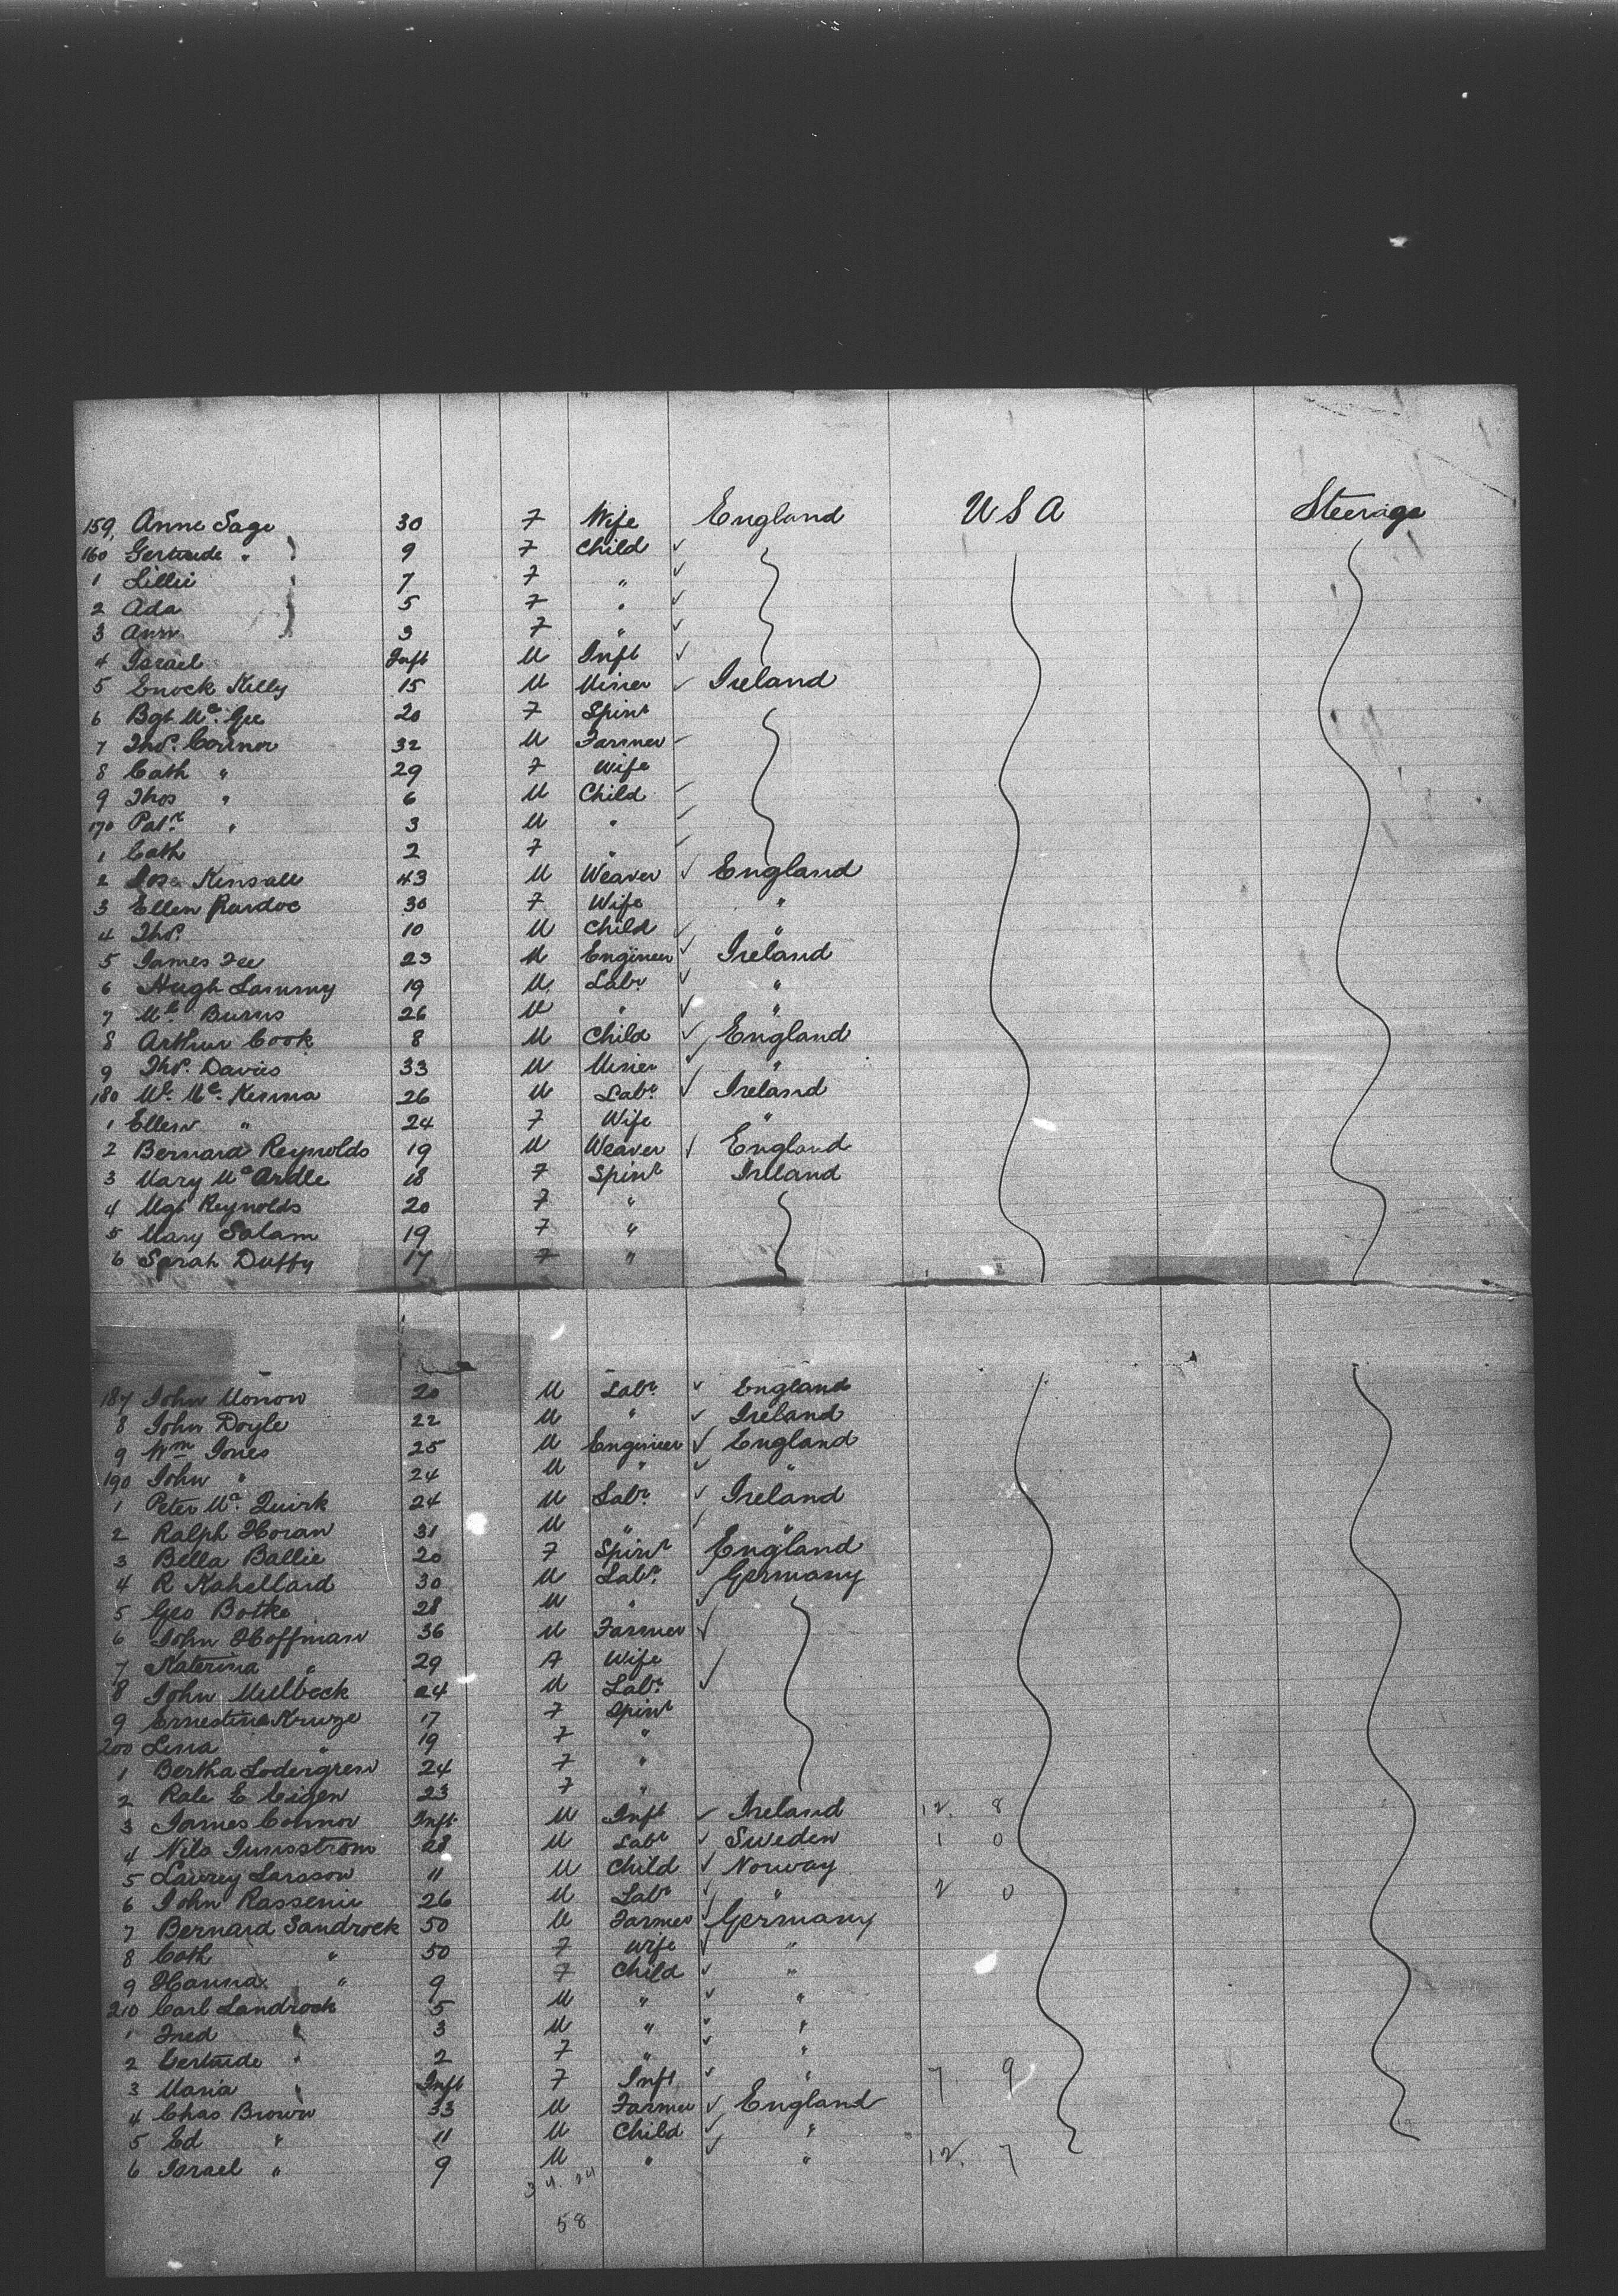 159, Anne Sage 30 F Wife England USA Steerage
160 Gertrude " 9 F Child ✓
1 Lillie 7 F " ✓
2 Ada 5 F " ✓
3 Ann 3 F " ✓
4 Israel Inft M Inft ✓
5 Enock Kelly 15 M Miner ✓ Ireland
6 Bgt Mc. Gee 20 F Spinr
7 Thos. Connor 32 M Farmer
8 Cath " 29 F Wife
9 Thos " 6 M Child
170 Patk " 3 M "
1 Cath 2 F "
2 Kinsall 43 M Weaver ✓ England
3 Ellen Pardoe 30 F Wife "
4 Thos. 10 M Child ✓ "
5 James Fee 23 M Engineer ✓ Ireland
6 Hugh Lammy 19 M Labr ✓ "
7 Ml. Burns 26 M " ✓ "
8 Arthur Cook 8 M Child ✓ England
9 Thos. Davies 33 M Miner ✓ "
180 Mc. Kenna 26 M Labr. ✓ Ireland
1 Ellen " 24 F Wife "
2 Bernard Reynolds 19 M Weaver ✓ England
3 Mary Mc Ardle 18 F Spinr Ireland
4 Mgt Reynolds 20 F "
5 Mary Salam 19 F "
6 Sarah Duffy 17 F "
187 John Morrow 20 M Labr. ✓ England
8 John Doyle 22 M " ✓ Ireland
9 Wm Jones 25 M Engineer ✓ England
190 John " 24 M " ✓ "
1 Peter Mc. Quirk 24 M Labr. ✓ Ireland
2 Ralph Horan 31 M " ✓ "
3 Bella Ballie 20 F Spinr England
4 R Kahellard 30 M Labr. ✓ Germany
5 Geo Botke 28 M " ✓
6 John Hoffman 36 M Farmer ✓
7 Katerina " 29 F Wife
8 John Mulbeck 24 M Labr. ✓
9 Ernestine Kruze 17 F Spinr
200 Lina " 19 F "
1 Bertha Lodergren 24 F "
2 E Eigen 23 F "
3 James Connor Inft M Inft ✓ Ireland 12. 8
4 Nils 28 M Labr ✓ Sweden 1 0
5 Larsson 11 M Child ✓ Norway
6 John Rassenie 26 M Labr ✓ " 2 0
7 Bernard Sandrock 50 M Farmer ✓ Germany
8 Cath " 50 F Wife ✓ "
9 Hanna " 9 F Child ✓ "
210 Carl Landrock 5 M " ✓ "
1 Fred " 3 M " ✓ "
2 Gertude " 2 F " ✓ "
3 Maria " Inft F Inft ✓ " 7 9
4 Chas Brown 33 M Farmer ✓ England
5 Ed " 11 M Child ✓ "
6 Israel " 9 M " ✓ " 12. 7
58